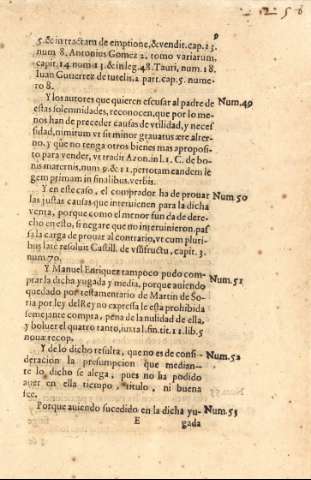 9
1256
5. & in tractatu de emptione, & vendit. cap. 13.
num 8. Antonius Gomez 2. tomo variarum,
capit. 14 num 13. & in leg. 48. Tauri, num. 18.
Iuan Gutierrez de tutelis 2 part. cap. 5. nume-
ro 8.
Y los autores que quieren escusar al padre de Num. 49
estas solemnidades, reconocen, que por lo me-
nos han de preceder causas de vtilidad, y neces
sidad, nimitum vt sit minor grauatus ære alter-
no, y que no tenga otros bienes mas aproposi-
to para vender, vt tradit Azon. in l. 1. C. de bo-
nis maternis, num 9. & 11. per totam eandem le
gem primam in finalibus verbis.
Y en este caso, el comprador ha de prouar Num. 50
las justas causas que interuienen para la dicha
venta, porque como el menor funda de dere-
cho en esto, si negare que no interuinieron, pas
sa la carga de prouar al contrario, vt cum pluri-
bus late resoluit Castill. de vsufructu, capit. 3.
num. 70.
Y Manuel Enriquez tampoco pudo com- Num. 51
prar la dicha yugada y media, porque auiendo
quedado por testamentario de Martin de So-
ria por ley del Reyno expressa le està prohibida
semejante compra, pena de la nulidad de ella,
y boluer el quatro tanto, iuxta l. fin. tit. 11. lib. 5
nouæ recop.
Y de lo dicho resulta, que no es de consi- Num. 52
deracion la presumpcion que median-
te lo dicho se alega, pues no ha podido
auer en ella tiempo, titulo, ni buena
fee.
Porque auiendo sucedido en la dicha yu- Num. 53
E gada